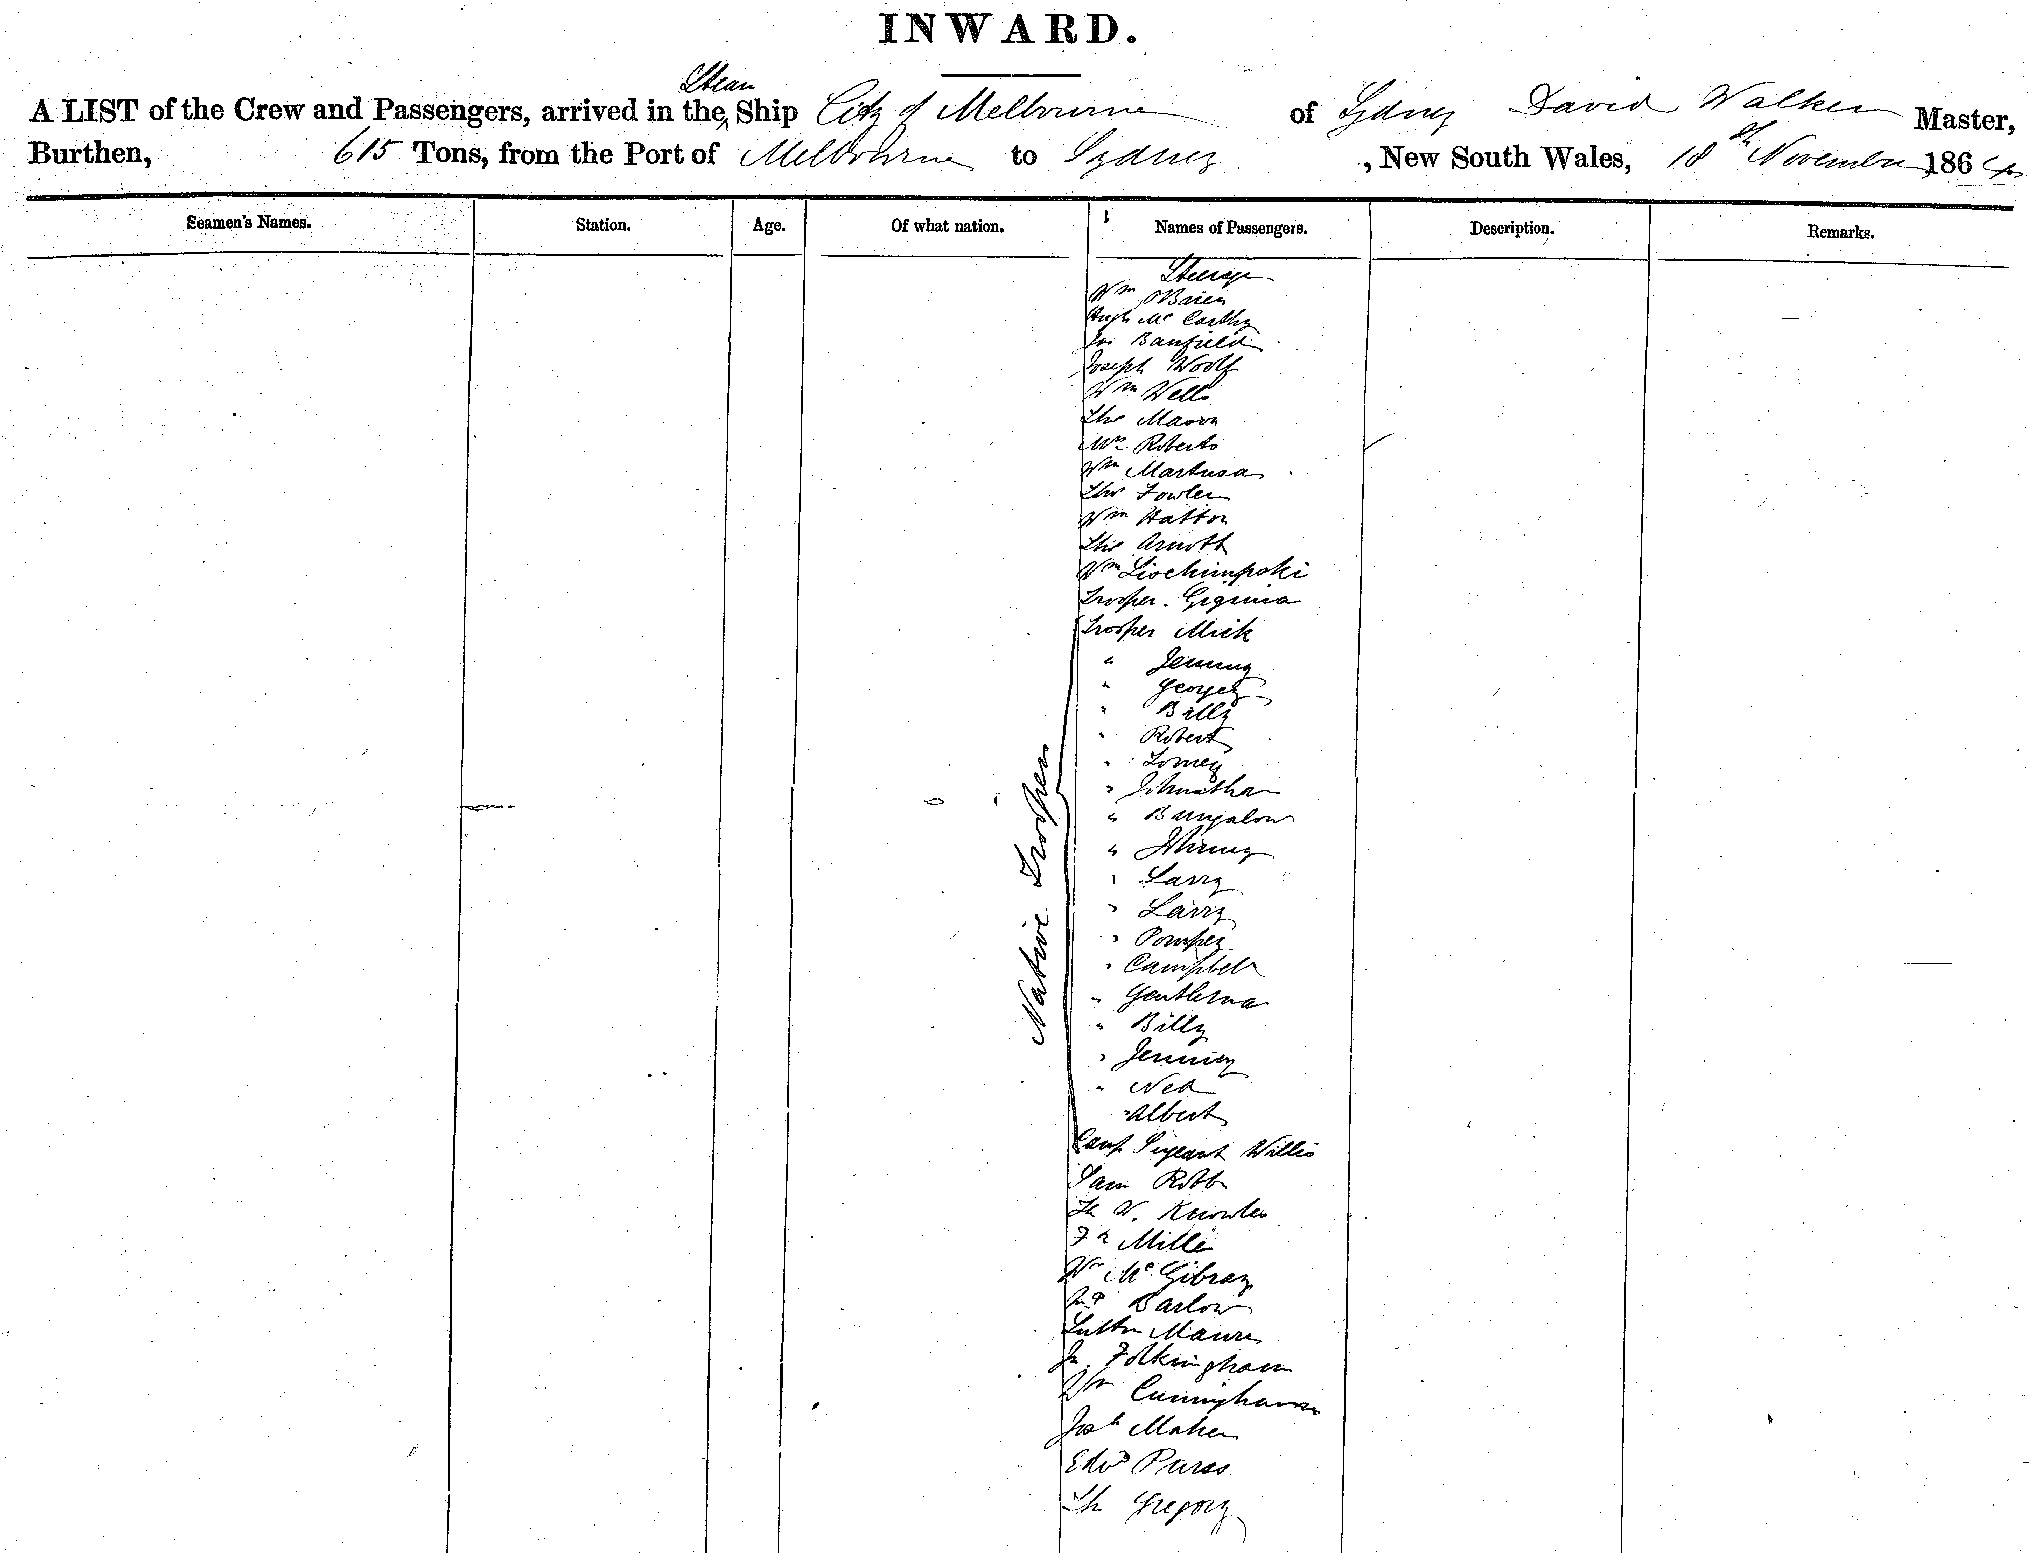 INWARD.
Steam
A LIST of the Crew and Passengers, arrived in the Ship City of Melbourne of Sydney David Walker Master,
Burthen, 615 Tons, from the Port of Melbourne to Sydney, New South Wales, 18th November 1864
Seamen's Names. Station. Age. Of what nation. Names of Passengers. Description. Remarks.
Steerage
Wm OBrien
Hugh Mc Carthy
Jos Banfield
Joseph Woolf
Wm Wells
Thos Mason
Mrs Roberts
Wm
Thos Fowler
Wm Hatton
Thos Arnott
Wm
Trooper
Trooper Mick
" Jemmy
" Georgey
" Billy
" Robert
" Tomey
" Johnathan
" Bungalow
"
" Larry
" Larry
" Pompey
" Campbell
" Gentleman
" Billy
" Jemmey
" Ned
" Albert
Native Troopers
Camp Sergeant Willis
Sam Robb
W. Knowles
Miller
Wm Mc
Barlow
Jn Folkingham
Wm Cuningham
Josh Maher
Edwd Purss
Th Gregory